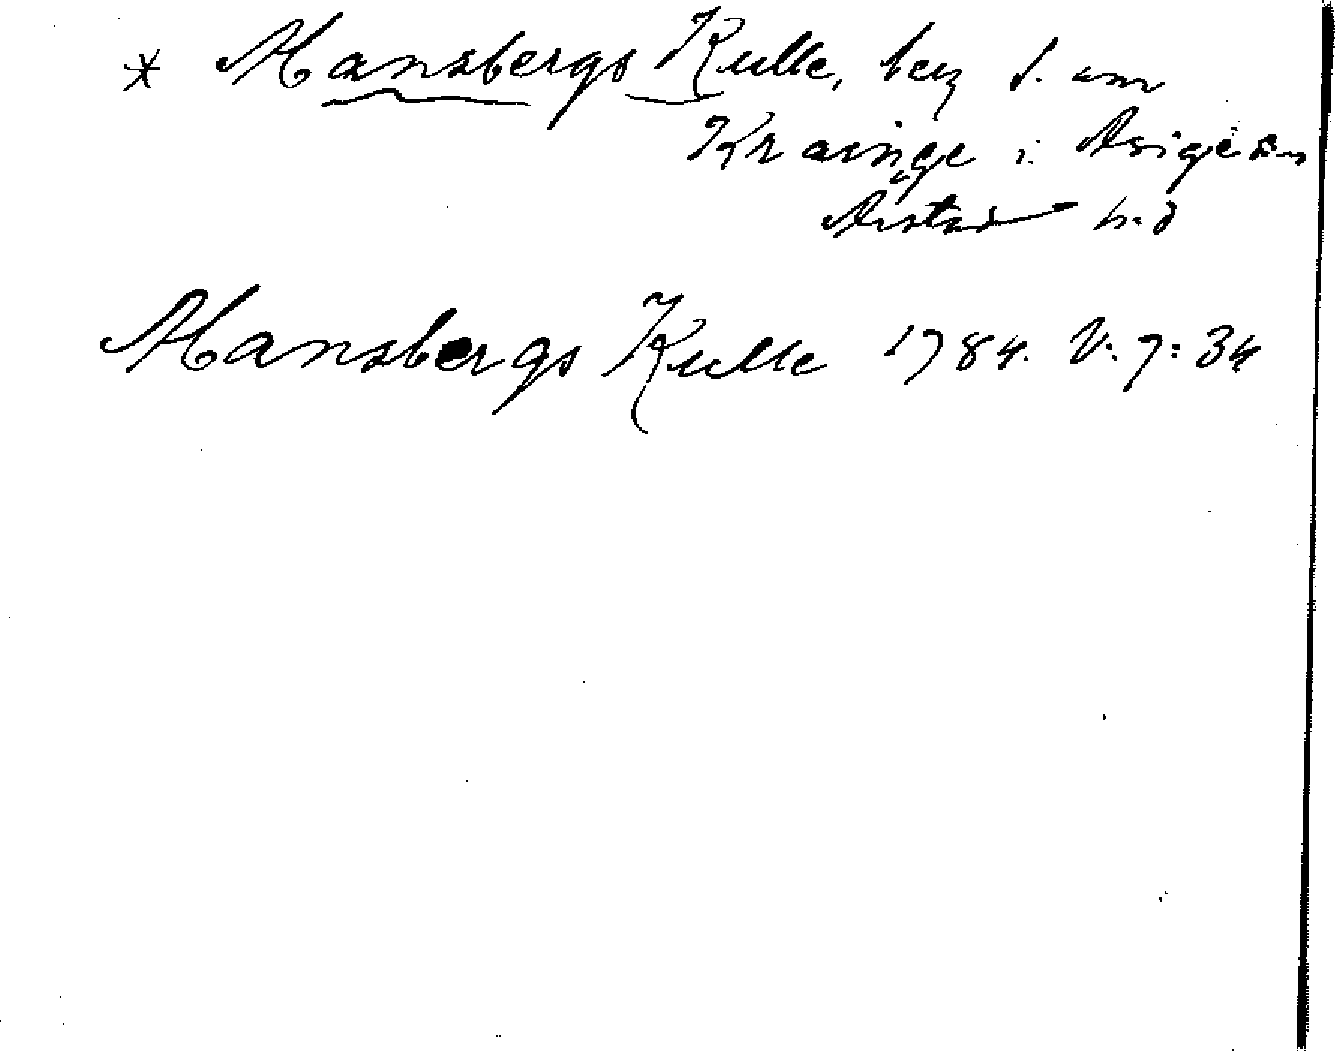 * Mansbergs Kulle, berg S. om
Krainge i Asige sn
Årstad h.d
Mansbergs Kulle 1784. V: 7: 34